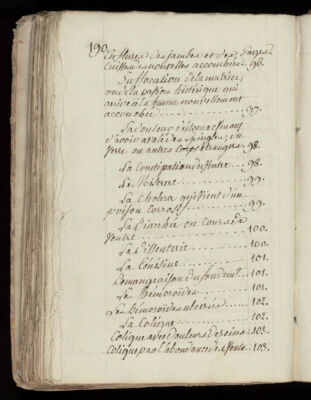 190.
Enflures des jambes et des
Cuisses nouvelles accouchées. 96.
Suffocation de la matrice,
ou de la passion histérique qui
arrive à la femme nouvellement
accouchée 97.
La douleur d'estomac venant
d'avoir avalé des épingles, du
Verre ou autres Corps étrangers. 98.
La Constipation du Ventre 98.
Le Miserere 99.
La Cholera qui vient d'un
poison Corrosif 99.
La Diarrhée ou Cours de
Ventre 100.
La Dissenterie 100.
La 101.
Demangeaison du fondement 101.
Les Hémoroïdes 101.
Les Hémoroïdes ulcerées 102.
La Colique 102.
Colique avec douleurs de reins. 103.
Colique par l'abondance des Vents. 103.